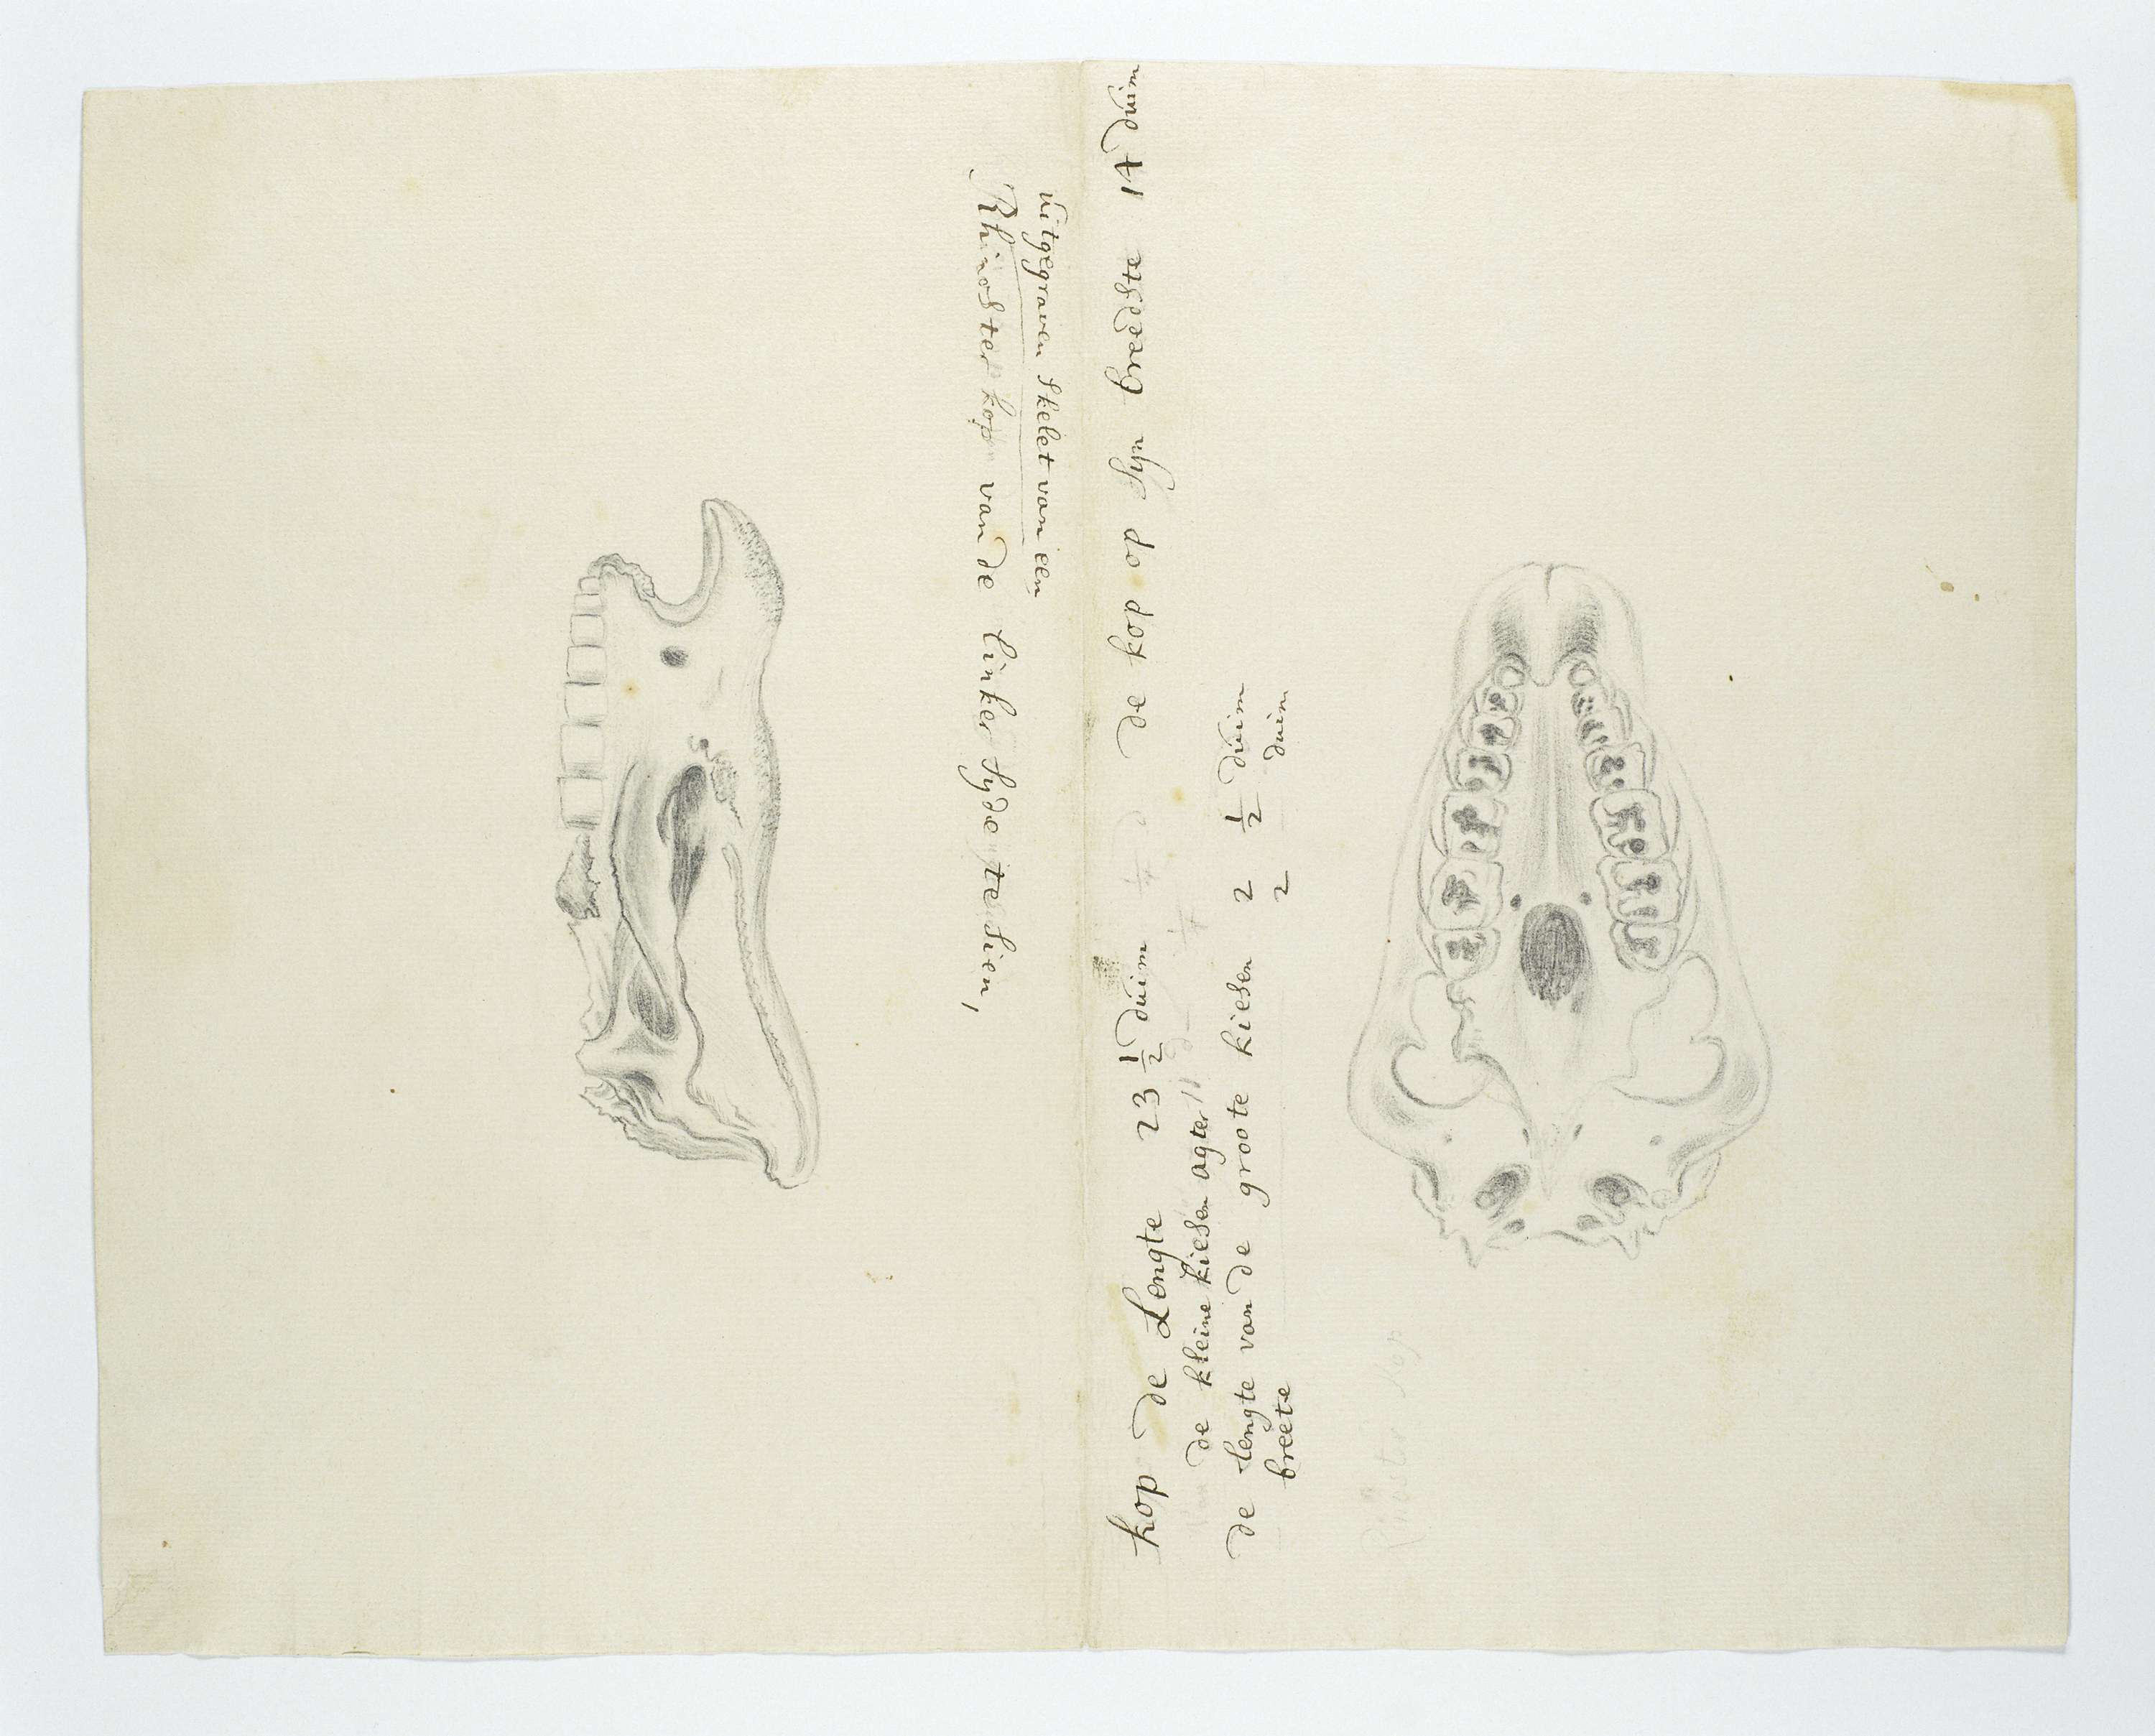 uitgegraven skelet van een
Rhinoster kop van de linker syde te sien,
kop de Lengte 23 1/2 duim de kop op syn breedste 14 duim
de kleine kiesen agter
de lengte van de groote kiesen 2 1/2 duim
breete 2 duim